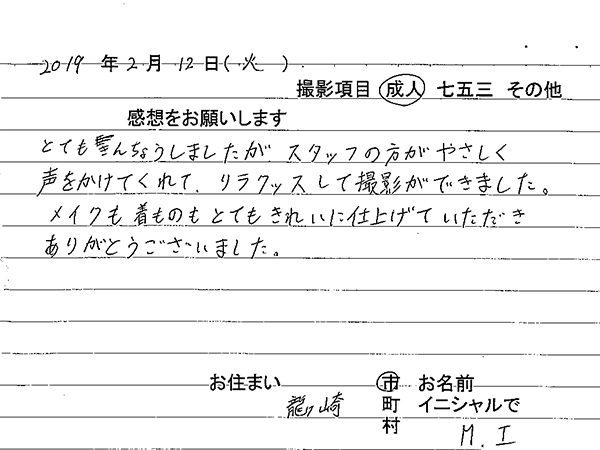 2019 年 2 月 12 日 ( 火 )
撮影項目 成人 七五三 その他
感想をお願いします
とても んちょうしましたが スタッフの方が やさしく
声をかけてくれて、リラックスして撮影ができました。
メイクも 着ものも とても きれいに仕上げて いただき
ありがとうございました。
お住まい 市 お名前
龍ヶ崎 町 イニシャルで
村 M. I